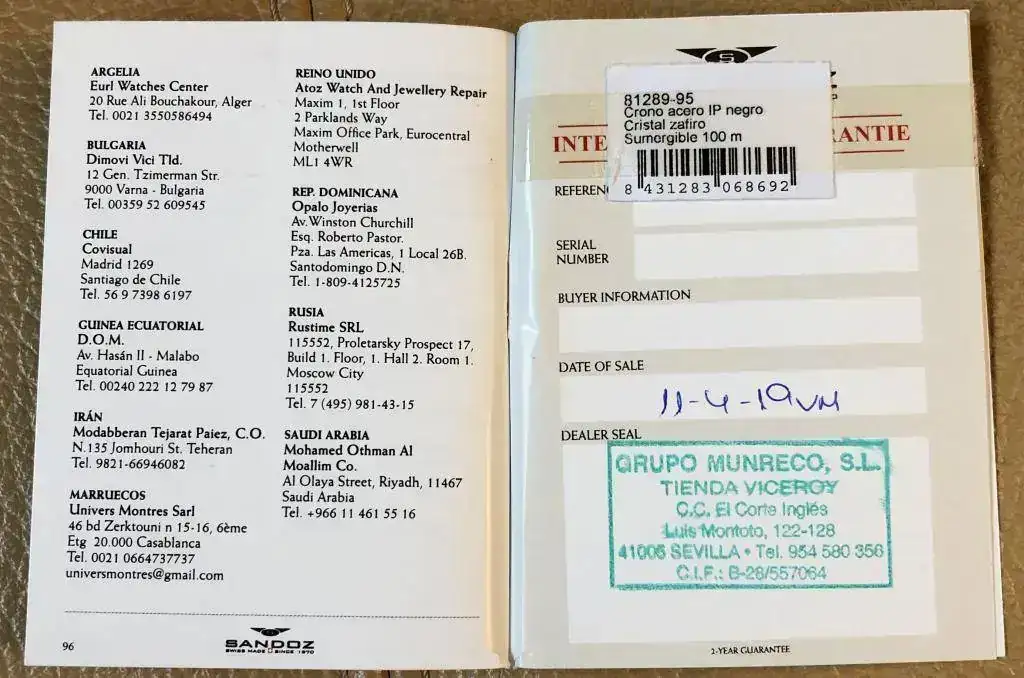 ARGELIA
Eurl Watches Center
20 Rue Ali Bouchakour, Alger
Tel. 0021 3550586494
BULGARIA
Dimovi Vici Tld.
12 Gen. Tzimerman Str.
9000 Varna - Bulgaria
Tel. 00359 52 609545
CHILE
Covisual
Madrid 1269
Santiago de Chile
Tel. 56 9 7398 6197
GUINEA ECUATORIAL
D.O.M.
Av. Hasán II - Malabo
Equatorial Guinea
Tel. 00240 222 12 79 87
IRÁN
Modabberan Tejarat Paiez, C.O.
N.135 Jomhouri St. Teheran
Tel. 9821-66946082
MARRUECOS
Univers Montres Sarl
46 bd Zerktouni n 15-16, 6ème
Etg 20.000 Casablanca
Tel. 0021 0664737737
universmontres@gmail.com
REINO UNIDO
Atoz Watch And Jewellery Repair
Maxim 1, 1st Floor
2 Parklands Way
Maxim Office Park, Eurocentral
Motherwell
ML1 4WR
REP. DOMINICANA
Opalo Joyerias
Av.Winston Churchill
Esq. Roberto Pastor.
Pza. Las Americas, 1 Local 26B.
Santodomingo D.N.
Tel. 1-809-4125725
RUSIA
Rustime SRL
115552, Proletarsky Prospect 17,
Build 1. Floor, 1. Hall 2. Room 1.
Moscow City
115552
Tel. 7 (495) 981-43-15
SAUDI ARABIA
Mohamed Othman Al
Moallim Co.
Al Olaya Street, Riyadh, 11467
Saudi Arabia
Tel. +966 11 461 55 16
96
SANDOZ
SWISS MADE SINCE 1870
81289-95
Crono acero IP negro
Cristal zafiro
Sumergible 100 m
8 431283 068692
INTE RANTIE
REFEREN
SERIAL
NUMBER
BUYER INFORMATION
DATE OF SALE
11-4-19
DEALER SEAL
GRUPO MUNRECO, S.L.
TIENDA VICEROY
C.C. El Corte Inglés
Luis Montoto, 122-128
41005 SEVILLA • Tel. 954 580 356
C.I.F.: B-28/557064
2-YEAR GUARANTEE